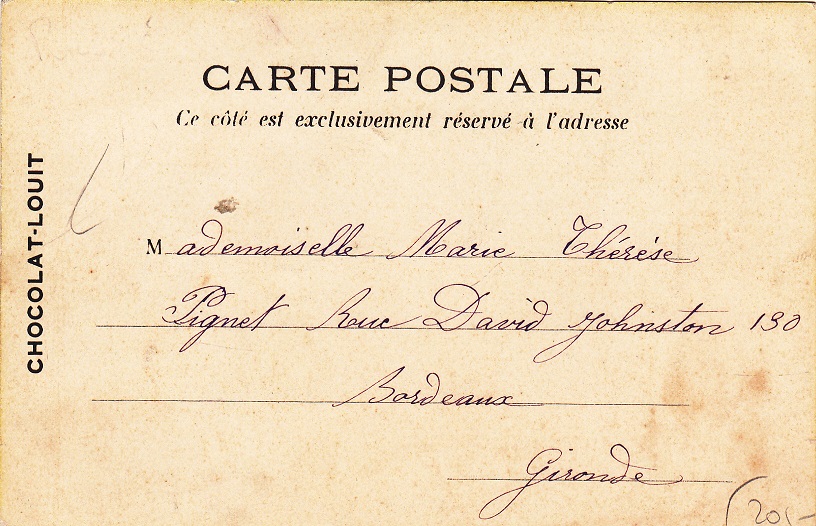 CARTE POSTALE
Ce côté est exclusivement réservé à l'adresse
CHOCOLAT-LOUIT
Mademoiselle Marie Thérèse
Pignet Rue David Johnston 130
Bordeaux
Gironde
201-